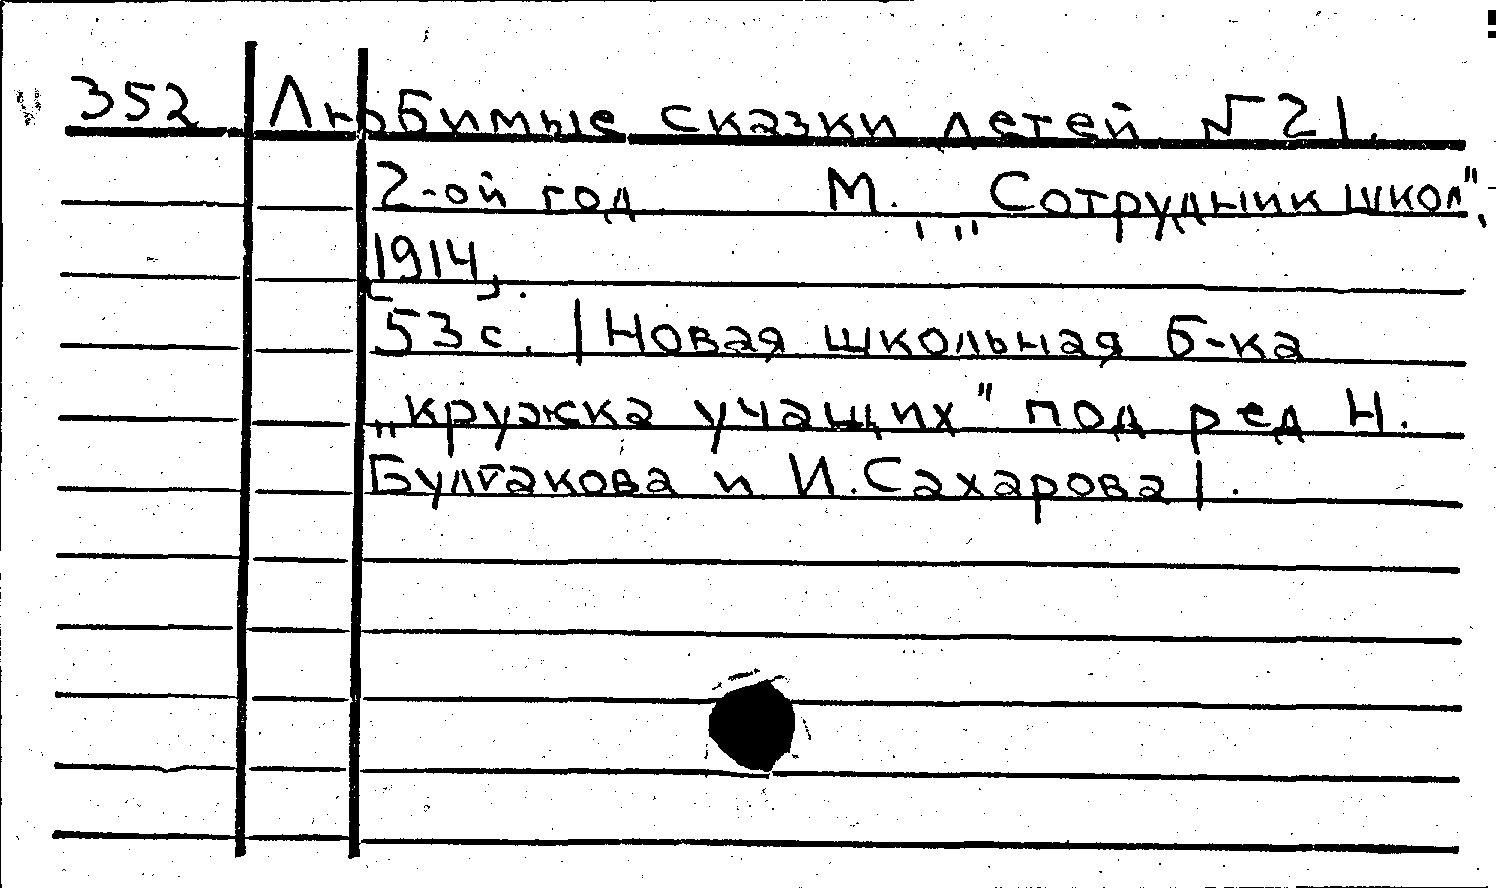 352 Любимые сказки детей № 21.
2-ой год М., „Сотрудник школ",
[1914].
53 с. | Новая школьная б-ка
„кружка учащих" под ред Н.
Булгакова и И. Сахарова |.